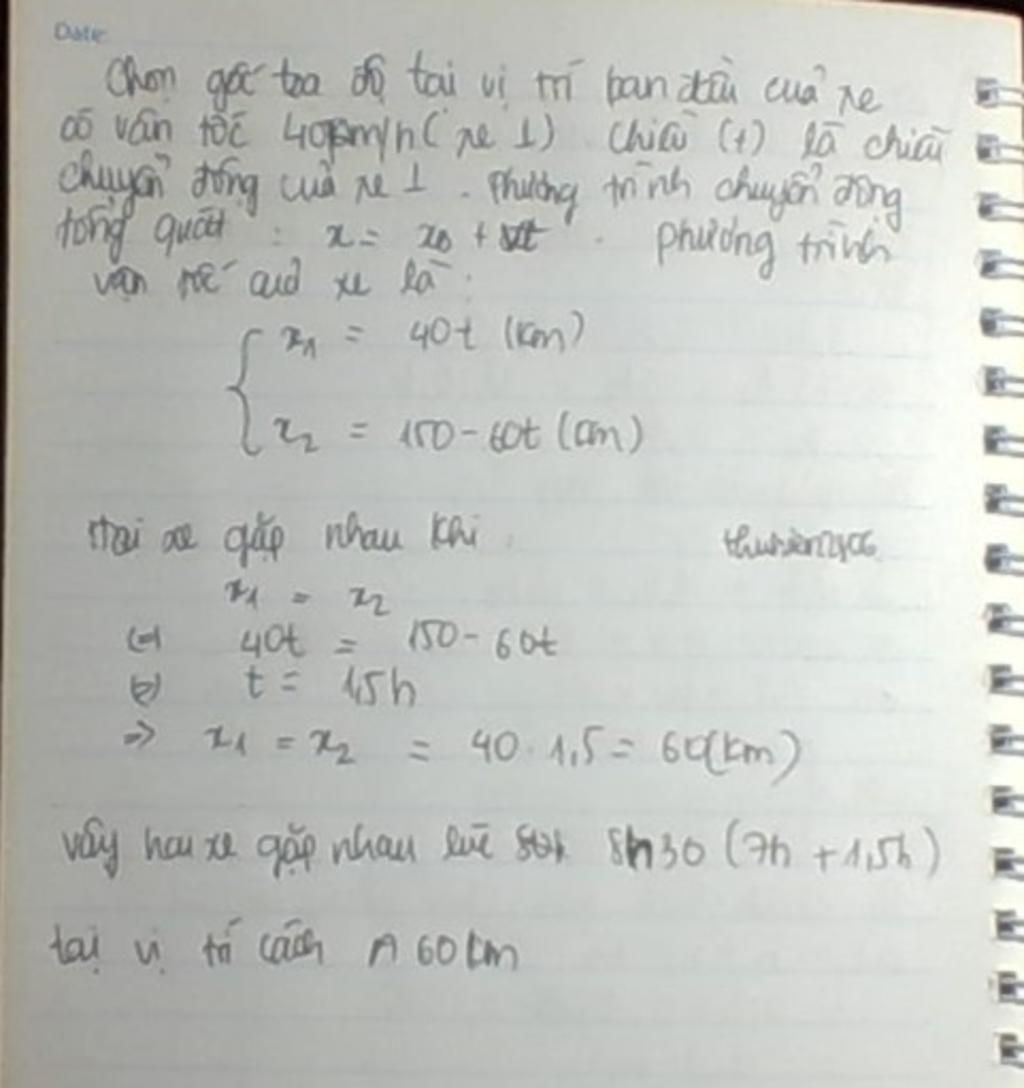 Date
Chọn gốc tọa độ tại vị trí ban đầu của xe
có vân tốc 40km/h (xe 1). Chiều (+) là chiều
chuyển động của xe 1. Phương trình chuyển động
tổng quát : x = x0 + vt. phương trình
vận tốc của xe là :
x1 = 40t (km)
x2 = 150 - 60t (km)
Hai xe gặp nhau khi
thuhien2406
x1 = x2
(=) 40t = 150 - 60t
(=) t = 1,5h
=> x1 = x2 = 40 . 1,5 = 60(km)
vậy hai xe gặp nhau lúc 8h30 (7h + 1,5h)
tại vị trí cách A 60km